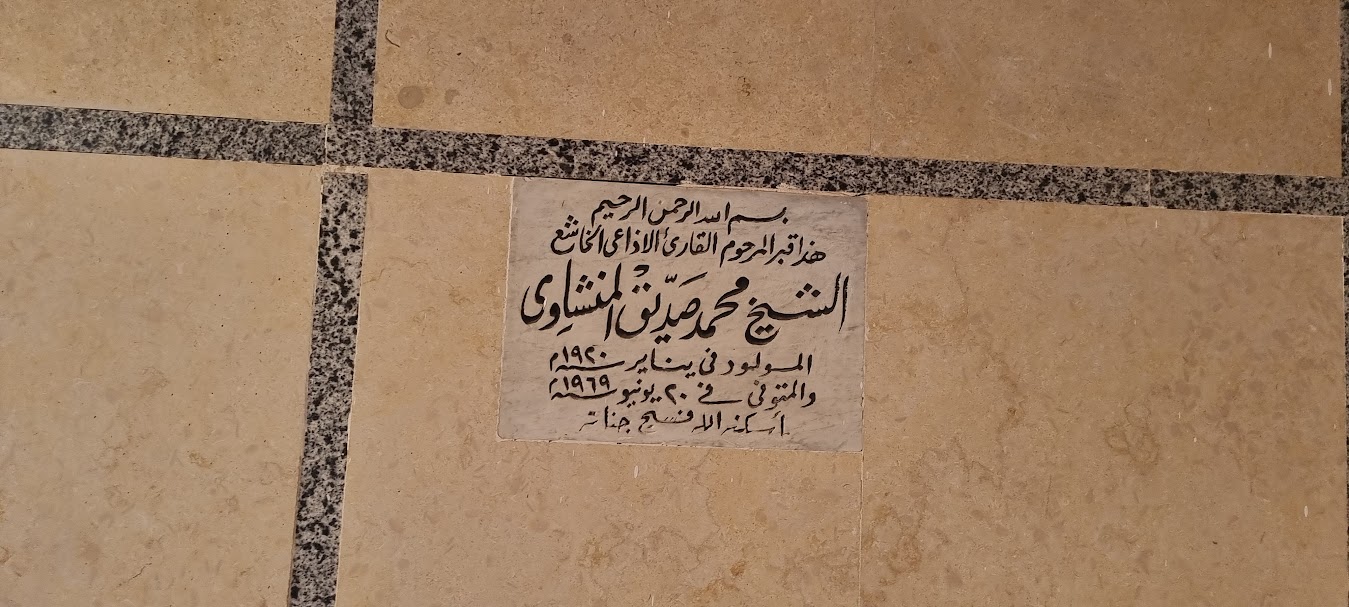 بسم الله الرحمن الرحيم
هذا قبر المرحوم القارئ الاذاعى الخاشع
الشيخ محمد صَدِّيق المنشاوى
المولود فى يناير سنة ١٩٢٠م
والمتوفى في ٢٠ يونيو سنة ١٩٦٩م
أسكنه الله فسيح جناته